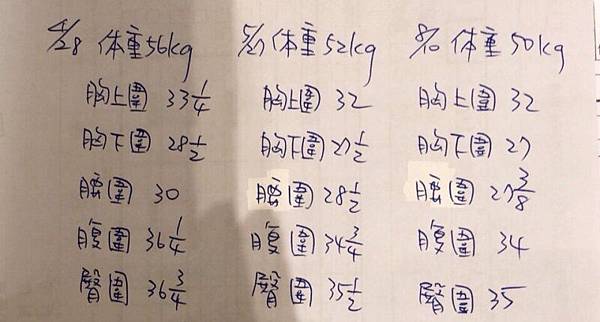 4/28 体重56kg 5/21 体重52kg 8/10 体重50kg
胸上圍 33 1/4 胸上圍 32 胸上圍 32
胸下圍 28 1/2 胸下圍 27 1/2 胸下圍 27
腰圍 30 腰圍 28 1/2 腰圍 27 3/8
腹圍 36 1/4 腹圍 34 3/4 腹圍 34
臀圍 36 3/4 臀圍 35 1/2 臀圍 35